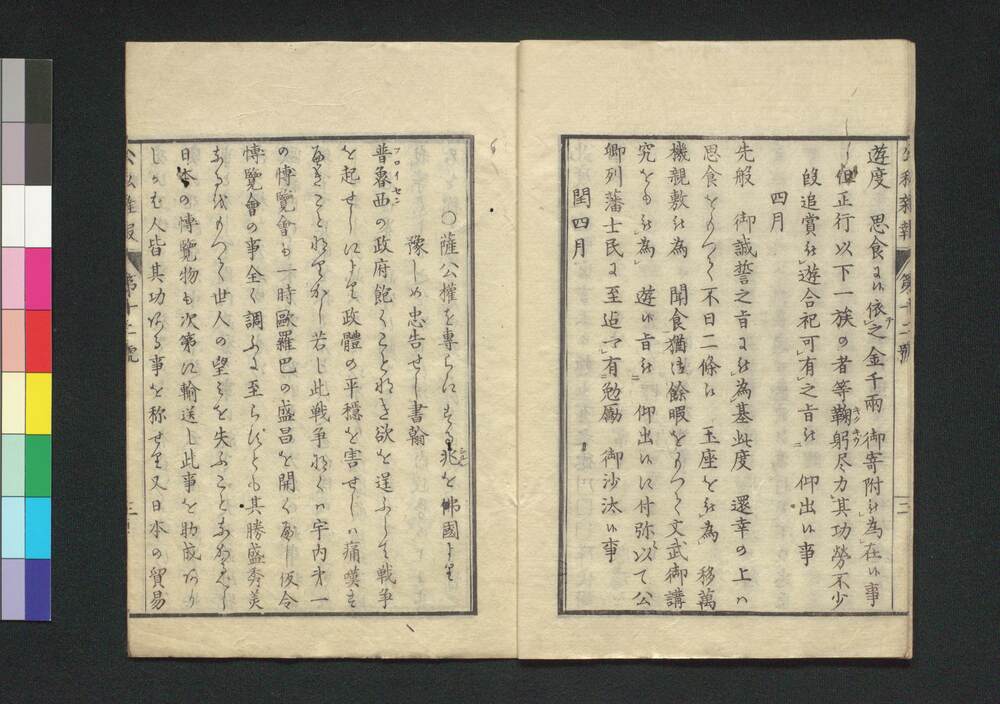 公私雑報 第十二號 三
遊度 思食ニ依之金千兩 御寄附被為在候事
但正行以下一族の者等鞠躬尽力其功勞不少
段追賞被遊合祀可有之旨被 仰出候事
四月
先般 御誠誓之旨ニ被為基此度 還幸の上ハ
思食をもつて不日二條に 玉座を被為 移萬
機親敷被為 聞食猶御餘暇をもつて文武御講
究をも被為 遊候旨被 仰出候に付弥以て公
卿列藩士民ニ至迄可有勉勵 御沙汰候事
閏四月
○薩公權を專らにする兆を佛國より
豫しめ忠告せし書翰
普魯西の政府飽くことなき欲を逞ふして戦争
プロイセン
を起せしにより政體の平穏を害せしハ痛嘆す
べきことなりかし若し此戦争なくハ宇内第一
の博覽會も一時歐羅巴の盛昌を開くべし仮令
博覽會の事全く調ふに至らずとも其勝盛秀美
なるをもつて世人の望ミを失ふことなかるべし
日本の博覽物も次第に輸送し此事を助成あり
しかバ人皆其功ある事を称せり又日本の貿易
公私雑報 第十二號 三